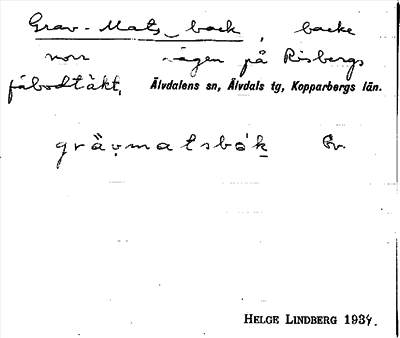 Grav-Mats_back, backe
norr vägen på Risbergs
fäbodtäkt, Älvdalens sn, Älvdals tg, Kopparbergs län.
grävmatsbók Ev.
HELGE LINDBERG 1937.